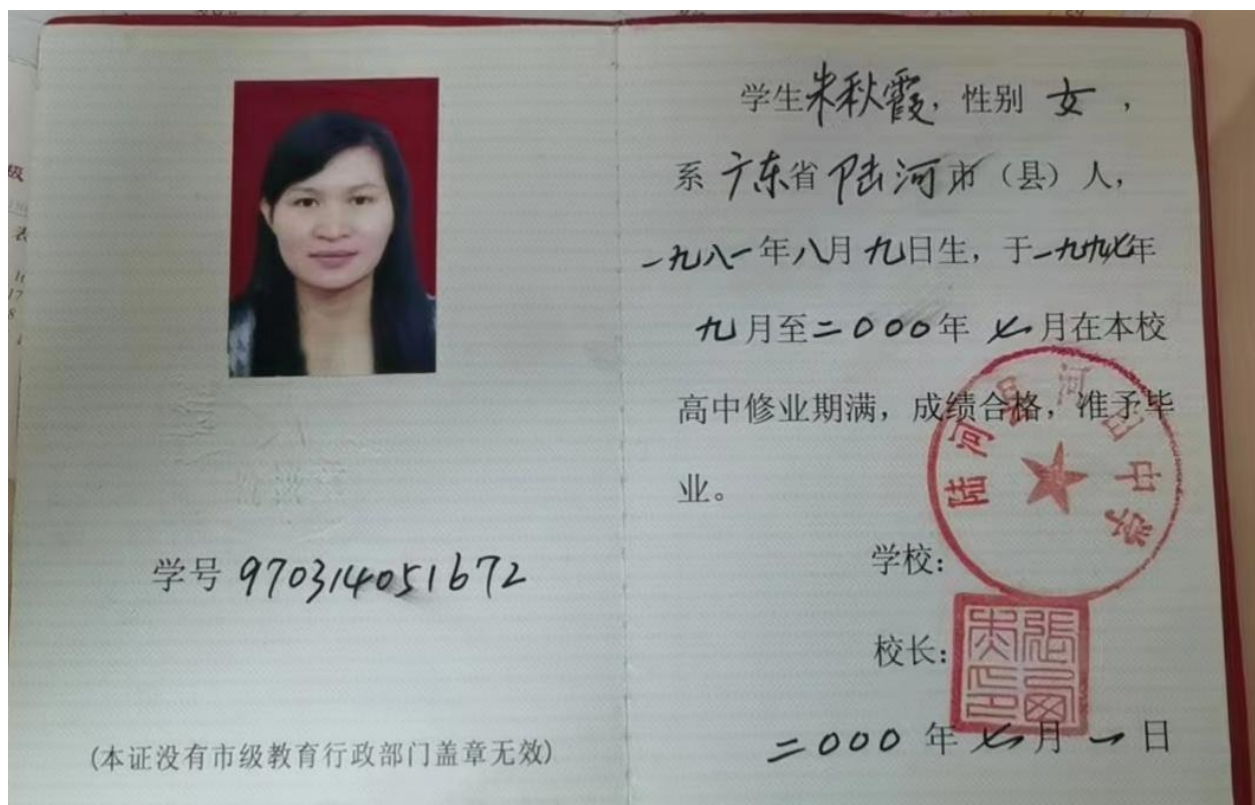 学号 970314051672
(本证没有市级教育行政部门盖章无效)
学生朱秋霞，性别 女，
系 广东省 陆河市（县）人，
一九八一年八月九日生，于一九九七年
九月至二000年 七月在本校
高中修业期满，成绩合格，准予毕
业。
陆河县河田中学
学校：
校长：
二000 年 七月 一日